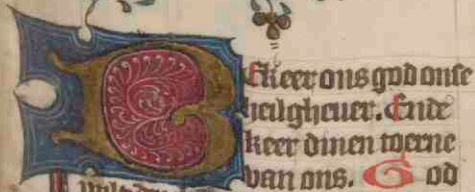 Ekeer ons god onse
heilgheuer. Ende
keer dinen toerne
van ons. God